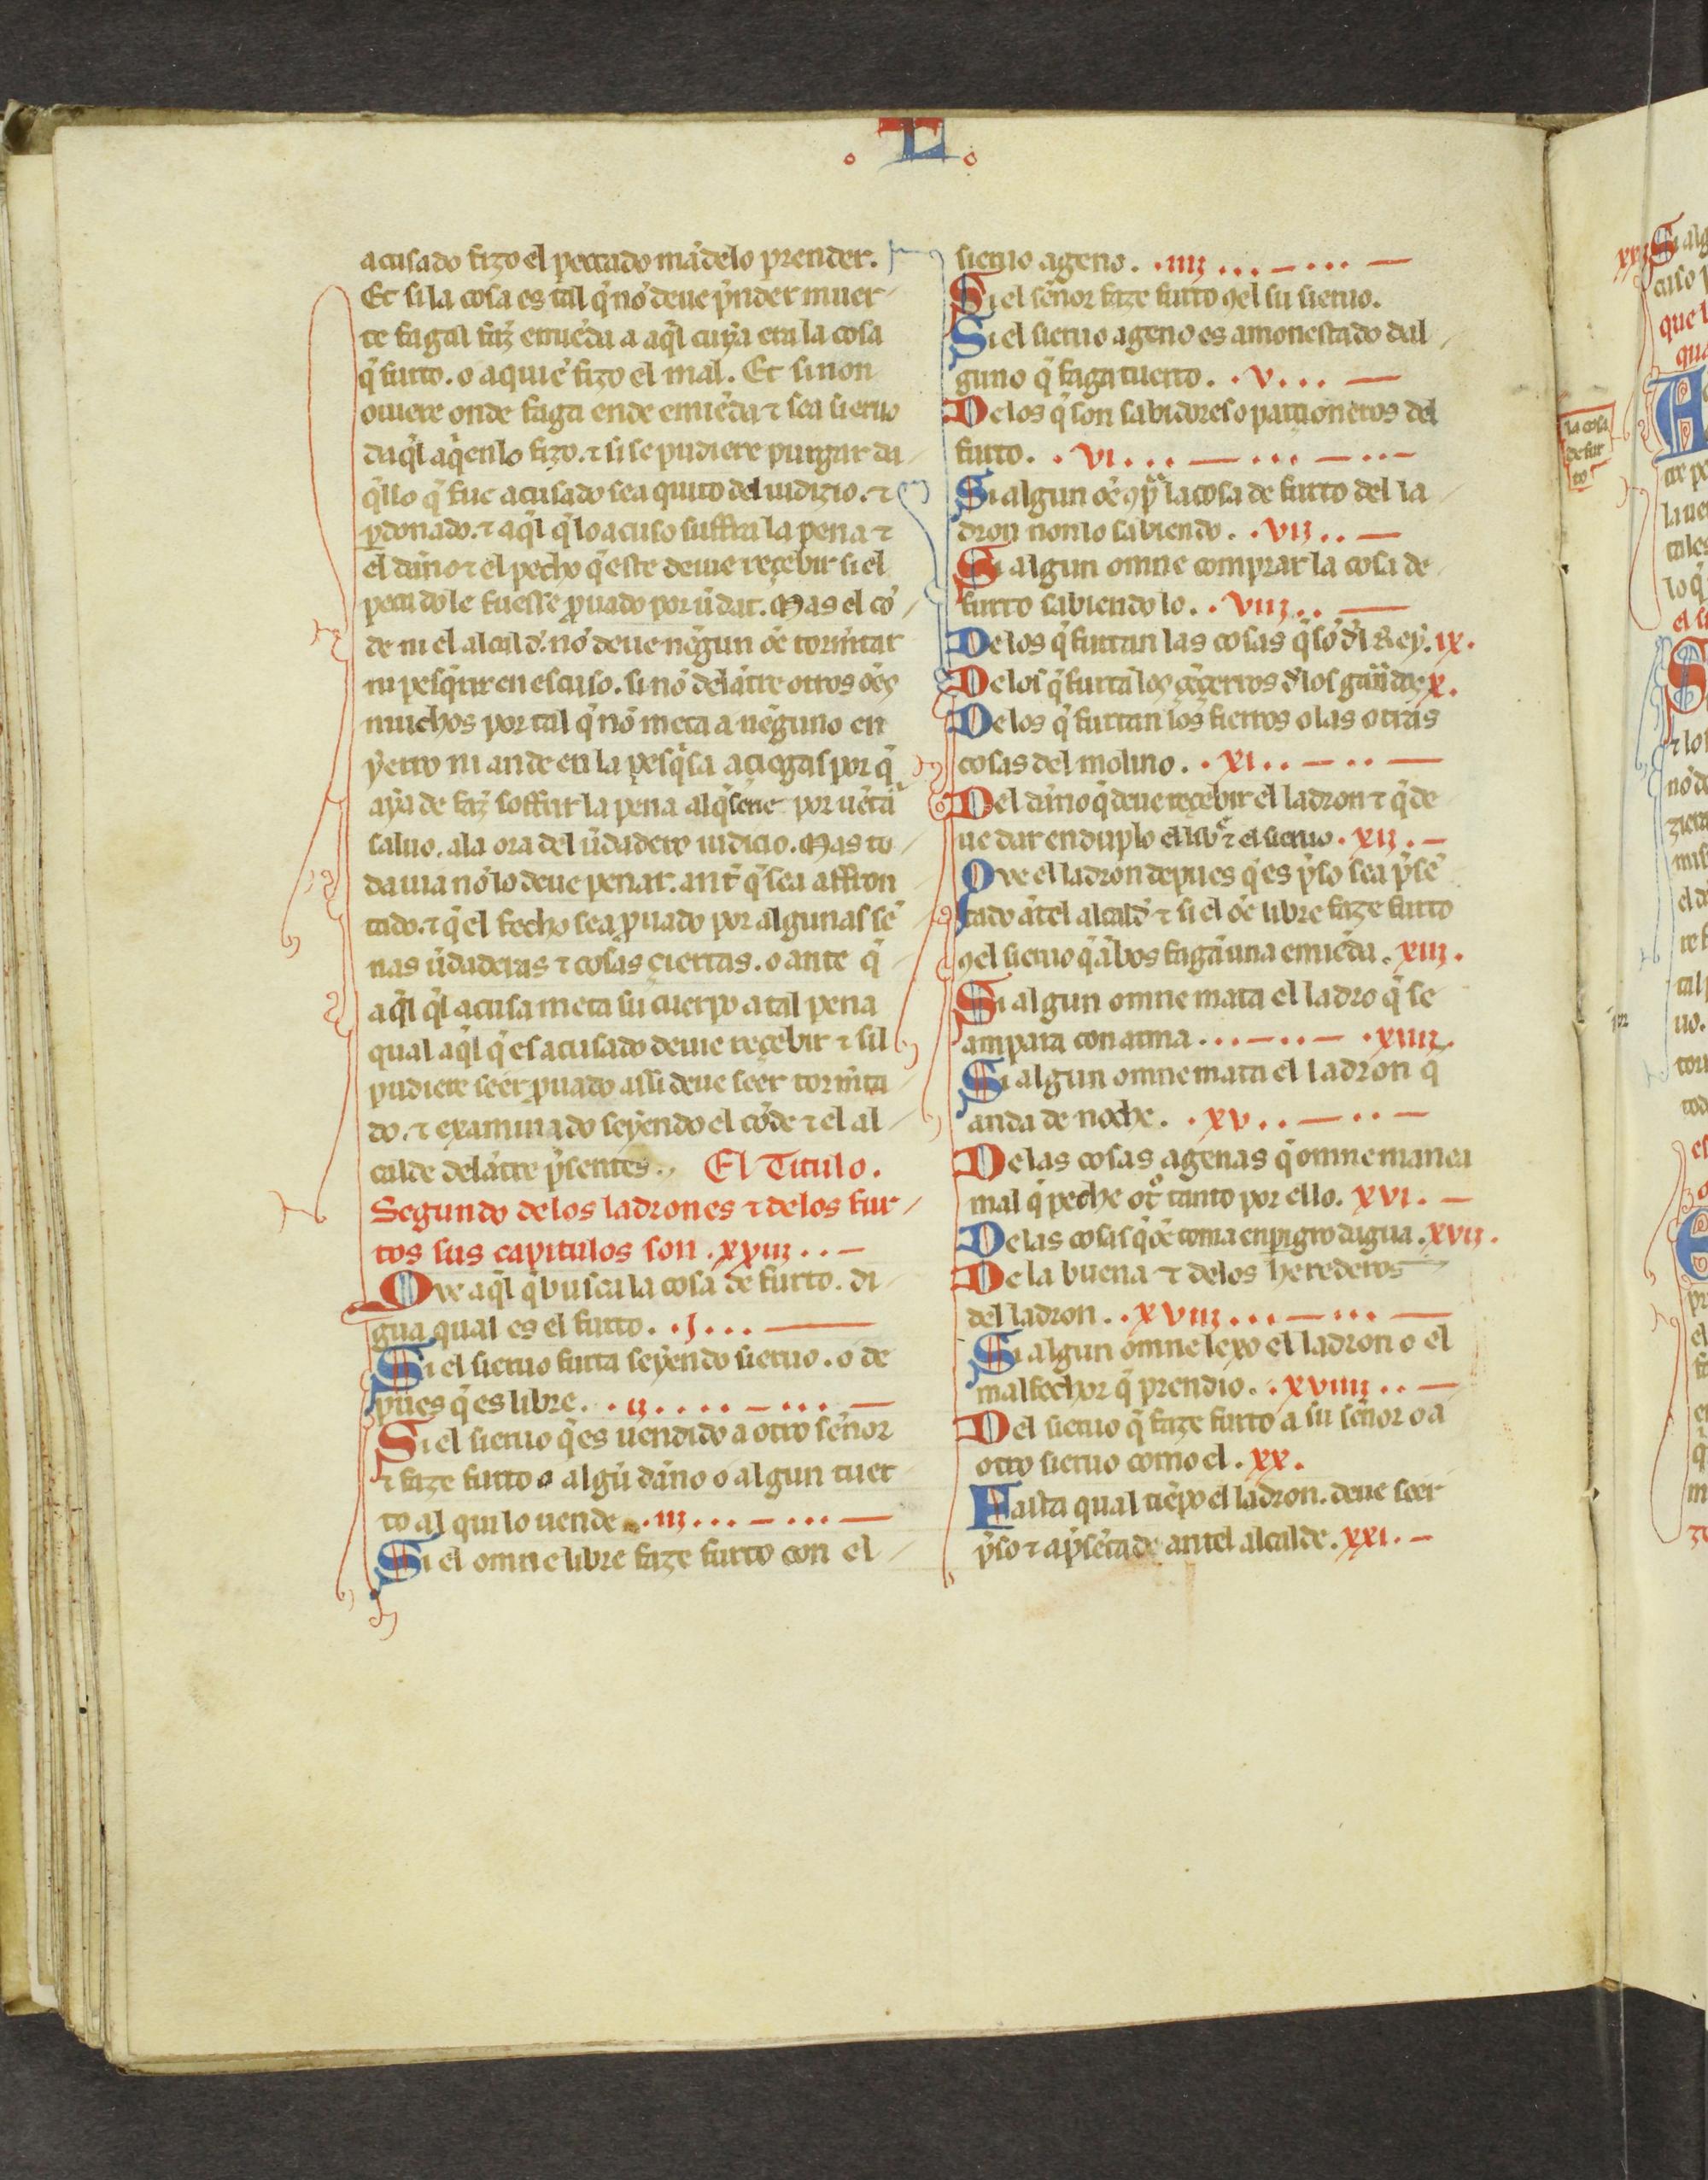 L
acusado fizo el peccado mãdelo prender.
Et si la cosa es tal q̃ nõ deue p̃nder muer
te fagal faz̃ emiẽda a aq̃l cuya era la cosa
q̃ furto. o a quiẽ fizo el mal. Et si non
ouiere onde faga ende emiẽda ⁊ sea sieruo
daq̃l a q̃en lo fizo. ⁊ si se pudiere purgar da
q̃llo q̃ fue acusado sea quito del iudizio. ⁊
ꝑdonado. ⁊ aq̃l q̃ lo acuso suffra la pena ⁊
el dãno ⁊ el pecho q̃ este deuie reçebir si el
peccado le fuesse ꝓuado por ũdat. Mas el cõ
de ni el alcald̃. nõ deue nẽgun oẽ tormẽtar
ni pesq̃rir en escuso. si nõ delãtre otros oẽs
muchos por tal q̃ nõ meta a nẽguno en
yerro ni ande en la pesq̃sa a çiegas por q̃
aya de faz̃ soffrir la pena al q̃ seríe por uẽtã
saluo. a la ora del ũdadero iudicio. Mas to
dauia nõ lo deue penar. ant̃ q̃ sea affron
tado. ⁊ q̃ el fecho sea ꝓuado por algunas sẽ
nas ũdaderas ⁊ cosas çiertas. o ante q̃
aq̃l q̃l acusa meta su cuerpo a tal pena
qual aq̃l q̃ es acusado deuie reçebir ⁊ sil
pudiere seer ꝓuado assi deue seer tormẽta
do. ⁊ examinado seyendo el cõde ⁊ el al
calde delãtre p̃sentes. El Titulo.
Segundo de los ladrones ⁊ de los fur
tos sus capitulos son .xxiii. . –
Que aq̃l q̃ busca la cosa de furto. di
ga qual es el furto. .j. . . —
Si el sieruo furta seyendo sieruo. o de
pues q̃ es libre. .ij. . . . – . . . —
Si el sieruo q̃ es uendido a otro señor
⁊ faze furto o algũ dãno o algun tuer
to al qui lo uende .iij. . . – . . . —
Si el omne libre faze furto con el
sieruo ageno. .iiij. . . – . . . —
Si el señor faze furto ꝯel su sieruo.
Si el sieruo ageno es amonestado dal
guno q̃ faga tuerto. .v. . . —
De los q̃ son sabidores o parçioneros del
furto. .vi. . . — . . . – . . . –
Si algun oẽ ꝯp̃ la cosa de furto del la
dron non lo sabiendo. .vij. . —
Si algun omne comprar la cosa de
furto sabiendo lo. .viij. . —
De los q̃ furtan las cosas q̃ sõ d̃l Rey. ix.
De los q̃ furtã los çẽçerros d̃ los gañados x.
De los q̃ furtan los fierros o las otras
cosas del molino. .xi. . – . . —
Del dãno q̃ deue reçebir el ladron ⁊ q̃ de
ue dar en duplo el lib̃ ⁊ el sieruo. xij. –
Que el ladron depues q̃ es p̃so sea p̃sẽ
tado ãtel alcald̃ ⁊ si el oẽ libre faze furto
ꝯel sieruo q̃ ãbos fagã una emiẽda. xiij.
Si algun omne mata el ladro q̃ se
ampara con arma . . . – . . – .xiiij.
Si algun omne mata el ladron q̃
anda de noche. .xv. . – . . –
De las cosas agenas q̃ omne manea
mal q̃ peche otº tanto por ello. xvi. –
De las cosas q̃ oẽ toma en ꝑigro dagua. xvij.
De la buena ⁊ de los herederos
del ladron. .xviij. . . – . . . —
Si algun omne lexo el ladron o el
malfechor q̃ prendio. .xviiij. . —
Del sieruo q̃ faze furto a su señor o a
otro sieruo como el. xx.
Fasta qual tiẽpo el ladron. deue seer
p̃so ⁊ ap̃sẽtade antel alcalde. xxi. –
la cosa
de fur
to